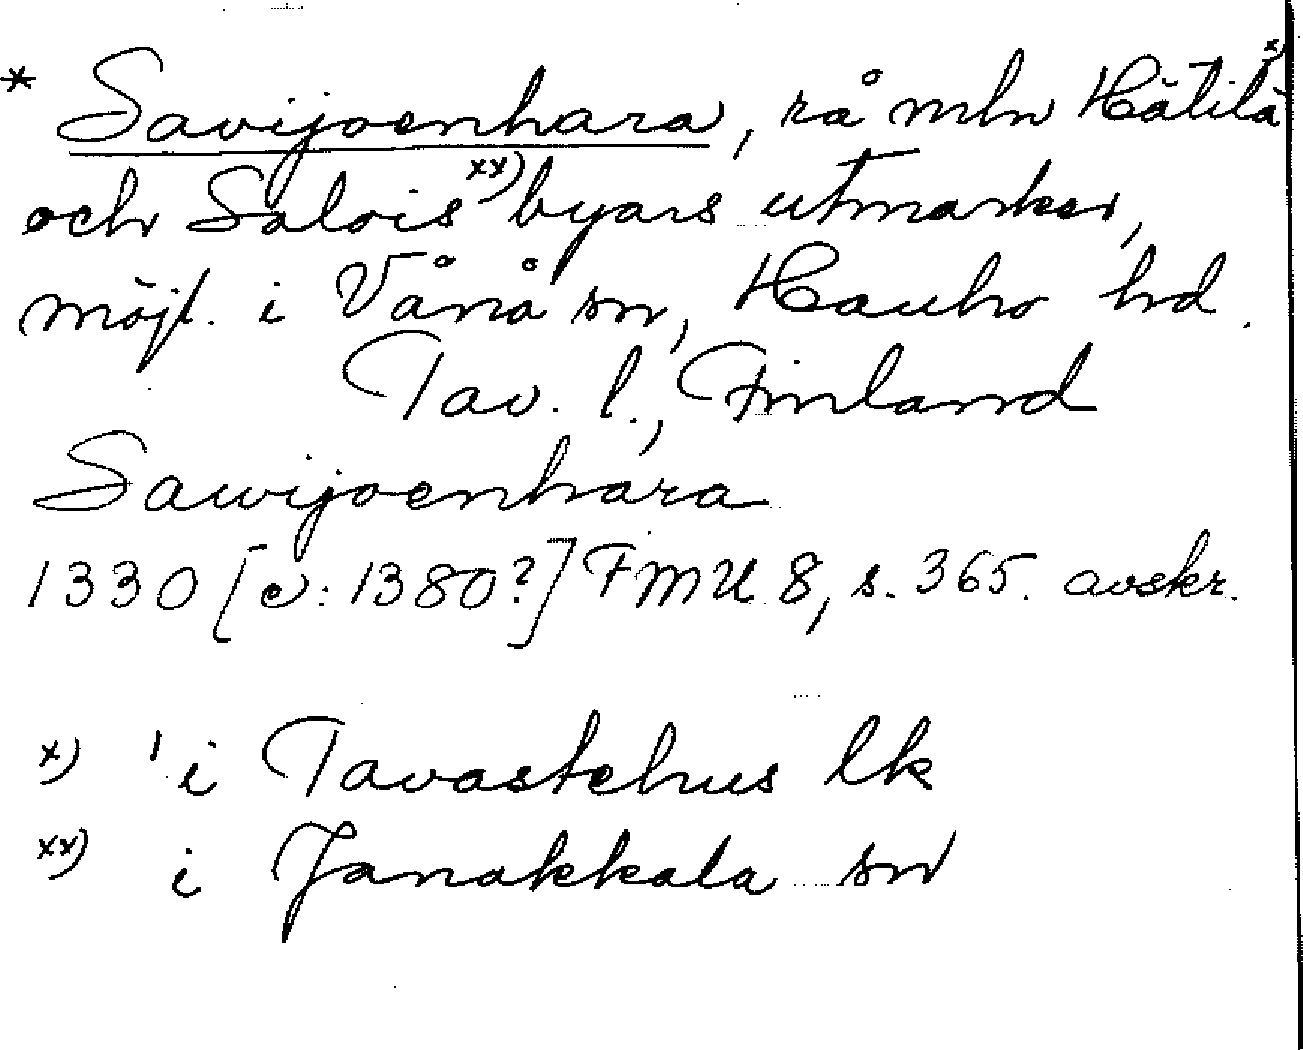 * Savijoenhara, rå mln Hätilä x)
och Salois xx) byars utmarker,
möjl. i Vånå sn, Hauho hd.
Tav. l., Finland
Sawijoenhara
1330 [e: 1380?] FMU 8, s. 365. avskr.
x) i Tavastehus lk
xx) i Janakkala sn